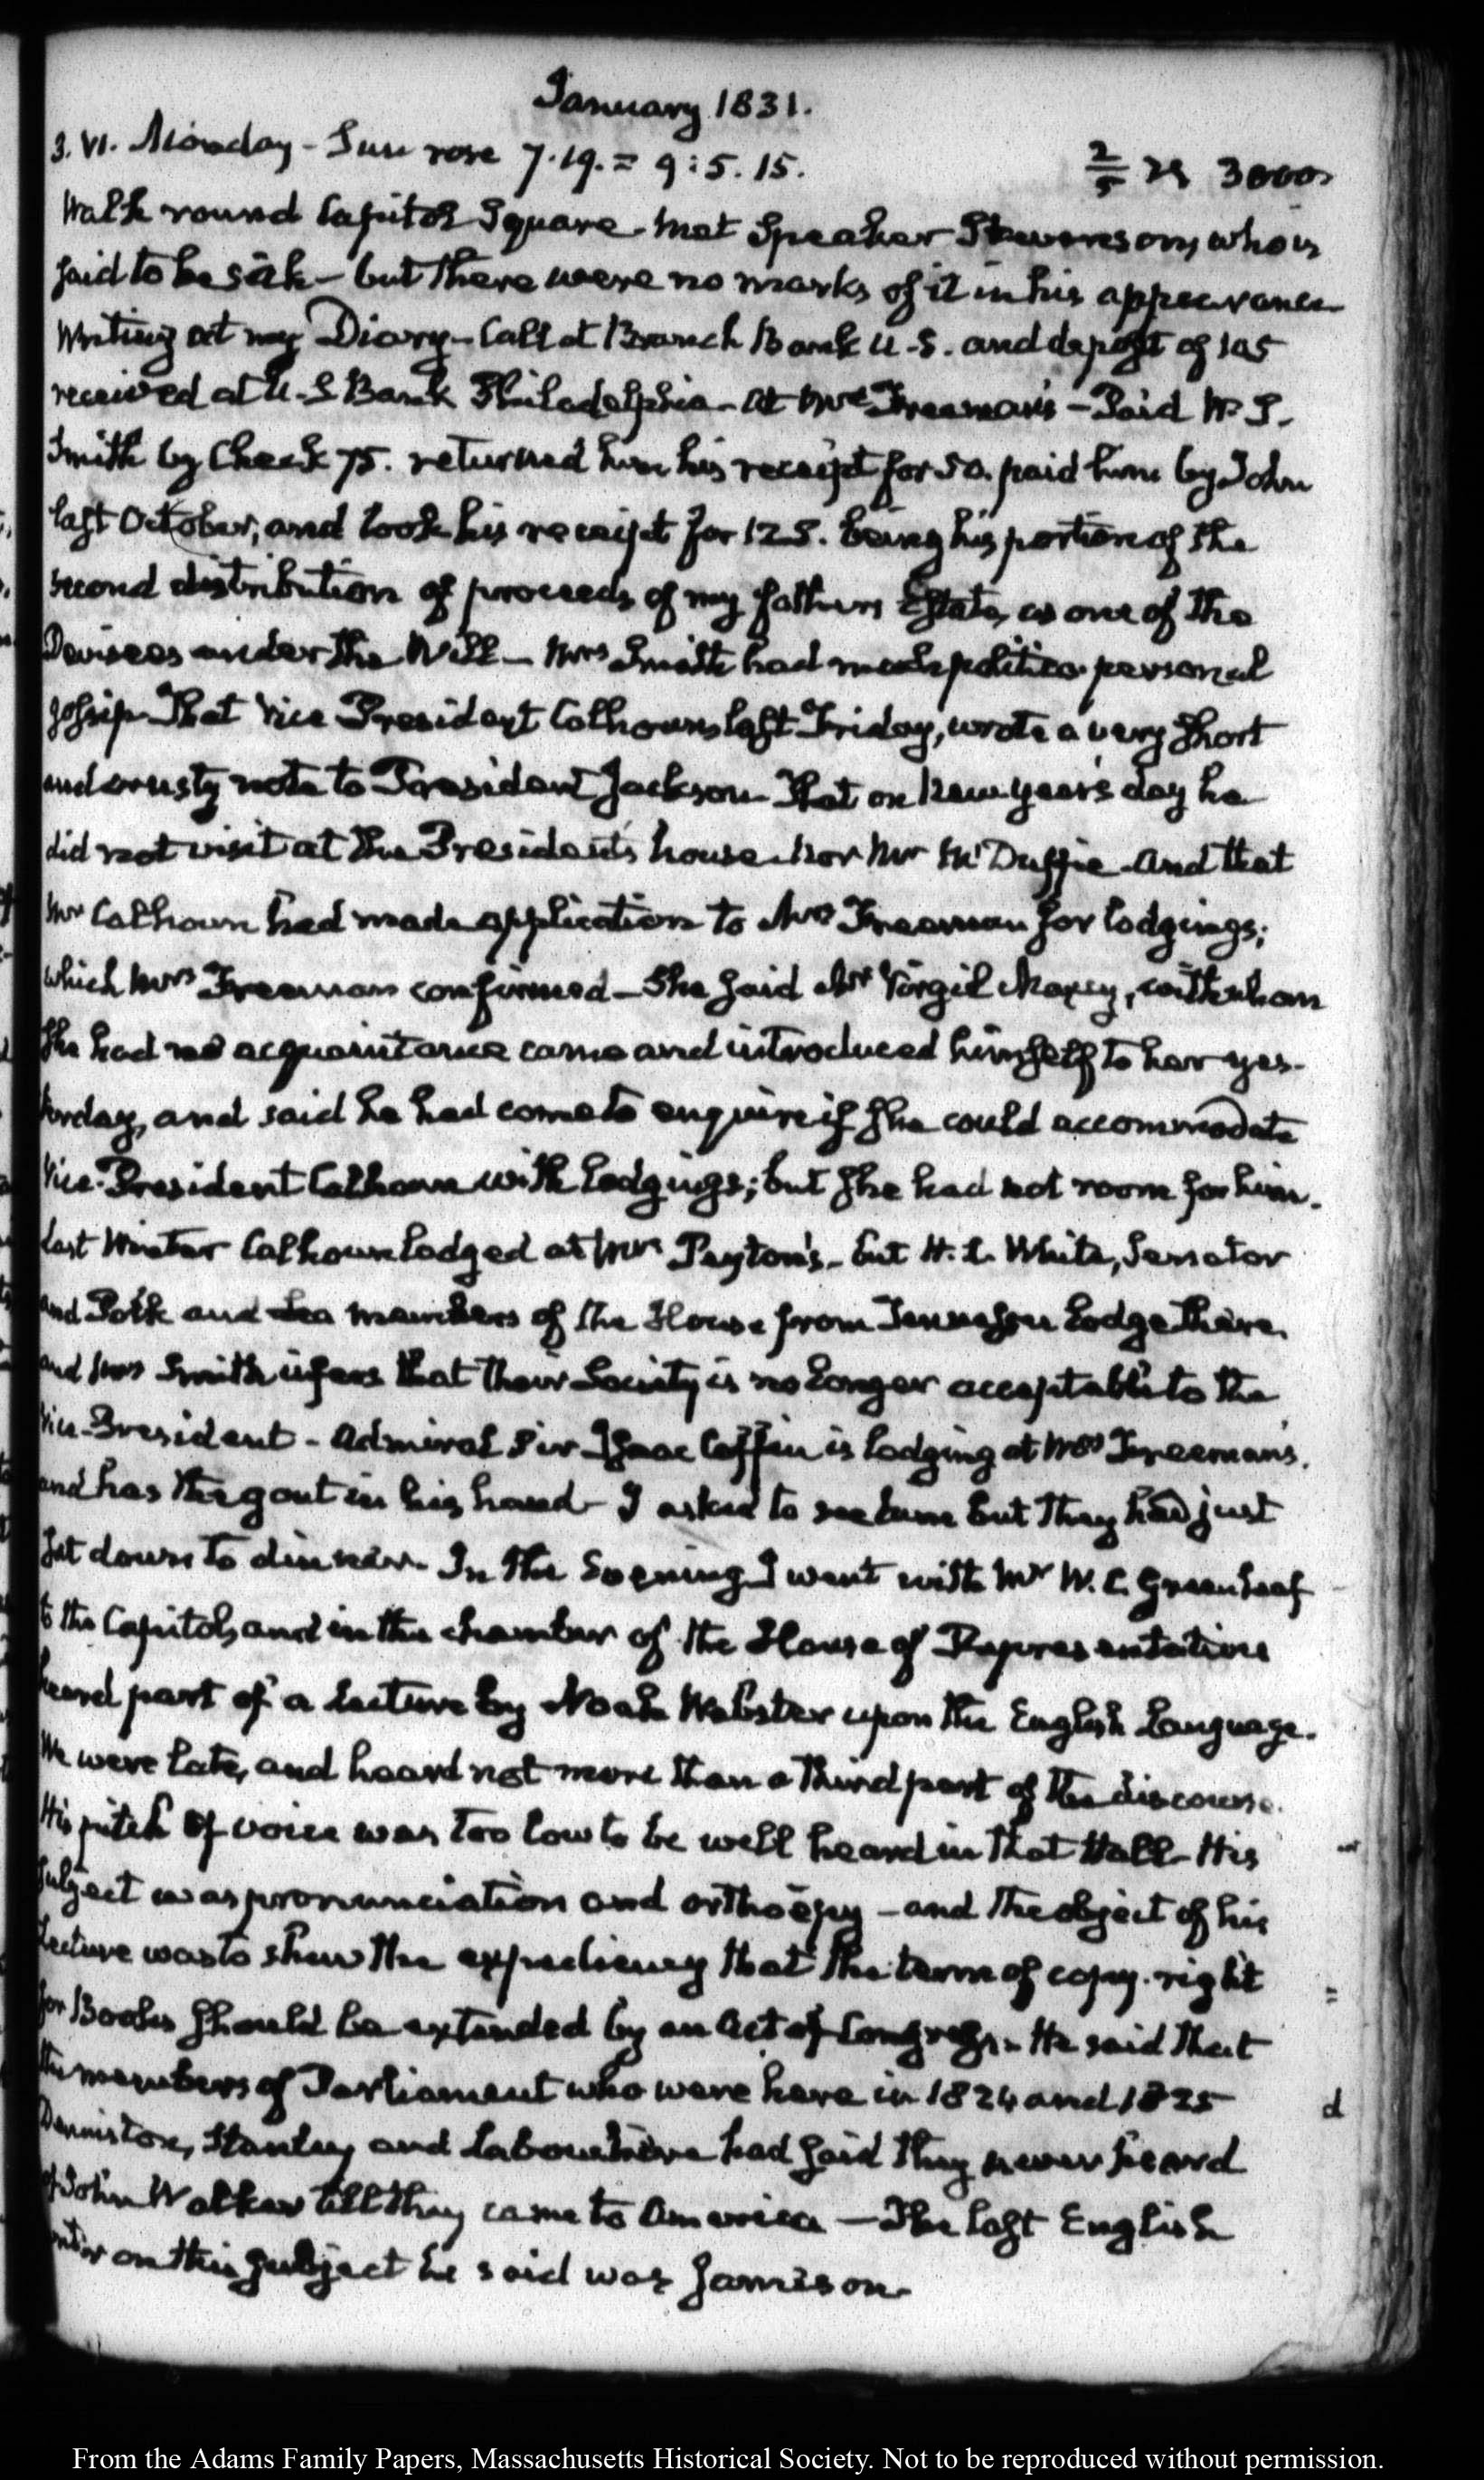 January 1831.
3. VI. Monday - Sun rose 7.19. = 9:5.15. 2/5 29 3000
Walk round Capitol Square - Met Speaker Stevenson, who is
said to be sick - but there were no marks of it in his appearance
Writing at my Diary - Call at Branch Bank U.S. and deposit of 105
received at U.S Bank Philadelphia - At Mrs Freeman's - Paid W. S.
Smith by Check 75. returned him his receipt for 50. paid him by John
last October, and took his receipt for 125. being his portion of the
second distribution of proceeds of my father's Estate, as one of the
Devisees under the Will - Mrs Smith had much politico-personal
gossip - That Vice President Calhoun, last Friday, wrote a very short
and crusty note to President Jackson - That on New year's day he
did not visit at the President's house - Nor Mr McDuffie - And that
Mr Calhoun had made application to Mrs Freeman for lodgings;
which Mrs Freeman confirmed - She said Mr Virgil Maxcy, with whom
she had no acquaintance came and introduced himself to her yes-
terday, and said he had come to enquire if she could accommodate
Vice-President Calhoun with lodgings; but she had not room for him.
Last Winter Calhoun lodged at Mrs Peyton's - but H. L. White, Senator
and Polk and Lea members of the House from Tennessee lodge there,
and Mrs Smith infers that their Society is no longer acceptable to the
Vice-President - Admiral Sir Isaac Coffin is lodging at Mrs Freeman's.
and has the gout in his hand - I asked to see him but they had just
sat down to dinner - In the Evening I went with Mr W. C. Greenleaf
to the Capitol, and in the chamber of the House of Representatives
heard part of a lecture by Noah Webster upon the English Language.
We were late, and heard not more than a third part of the discourse.
His pitch of voice was too low to be well heard in that Hall - His
subject was pronunciation and orthoëpy - and the object of his
Lecture was to shew the expediency that the term of copy-right
for Books should be extended by an Act of Congress - He said that
the members of Parliament who were here in 1824 and 1825
Denniston, Stanley, and Labouchere had said they never heard
of John Walker till they came to America - The last English
writer on this subject he said was Jamieson -
From the Adams Family Papers, Massachusetts Historical Society. Not to be reproduced without permission.